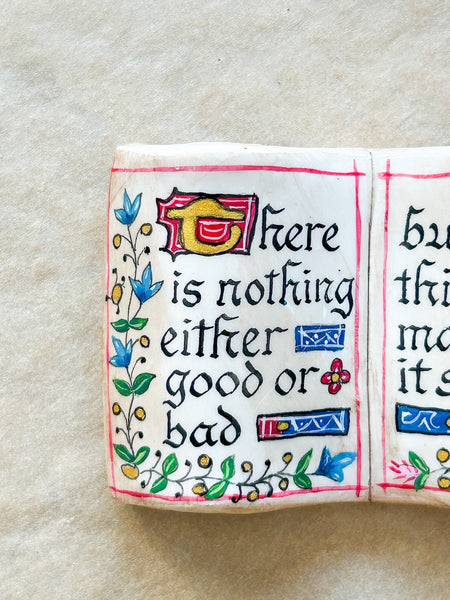 There
is nothing
either
good or
bad
bu
thi
ma
it s